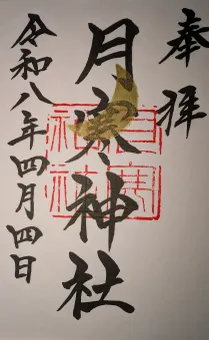 奉拝
月寒神社
月寒神社
令和八年四月四日